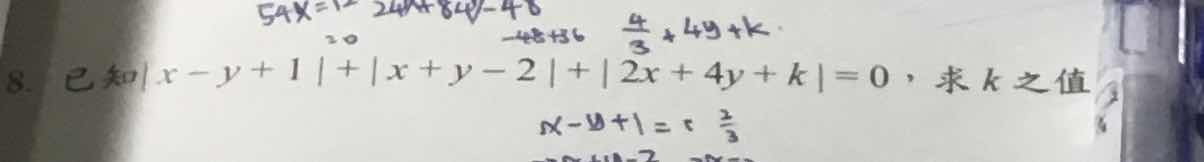 54x=12 24x+84y-48
20 -48+36 4/3+4y+k
8. 已知|x-y+1|+|x+y-2|+|2x+4y+k|=0，求k之值
x-y+1= 2/3